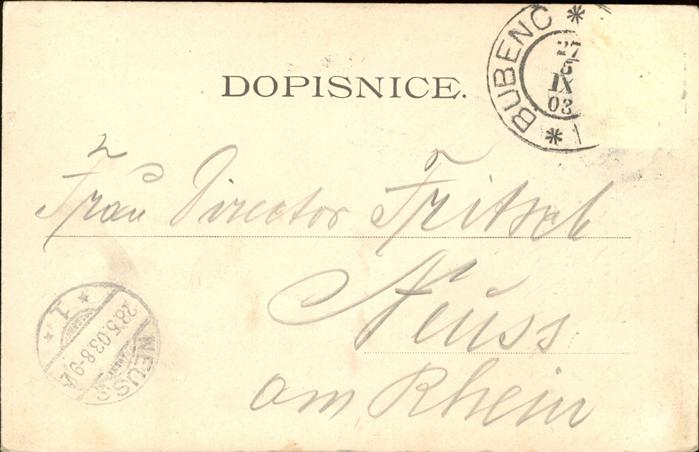 DOPISNICE.
* BUBENČ *
27
5
IX
03
Frau Director Fritsch
Neuss
am Rhein
* 1 *
28.5.03.8-9V.
NEUSS